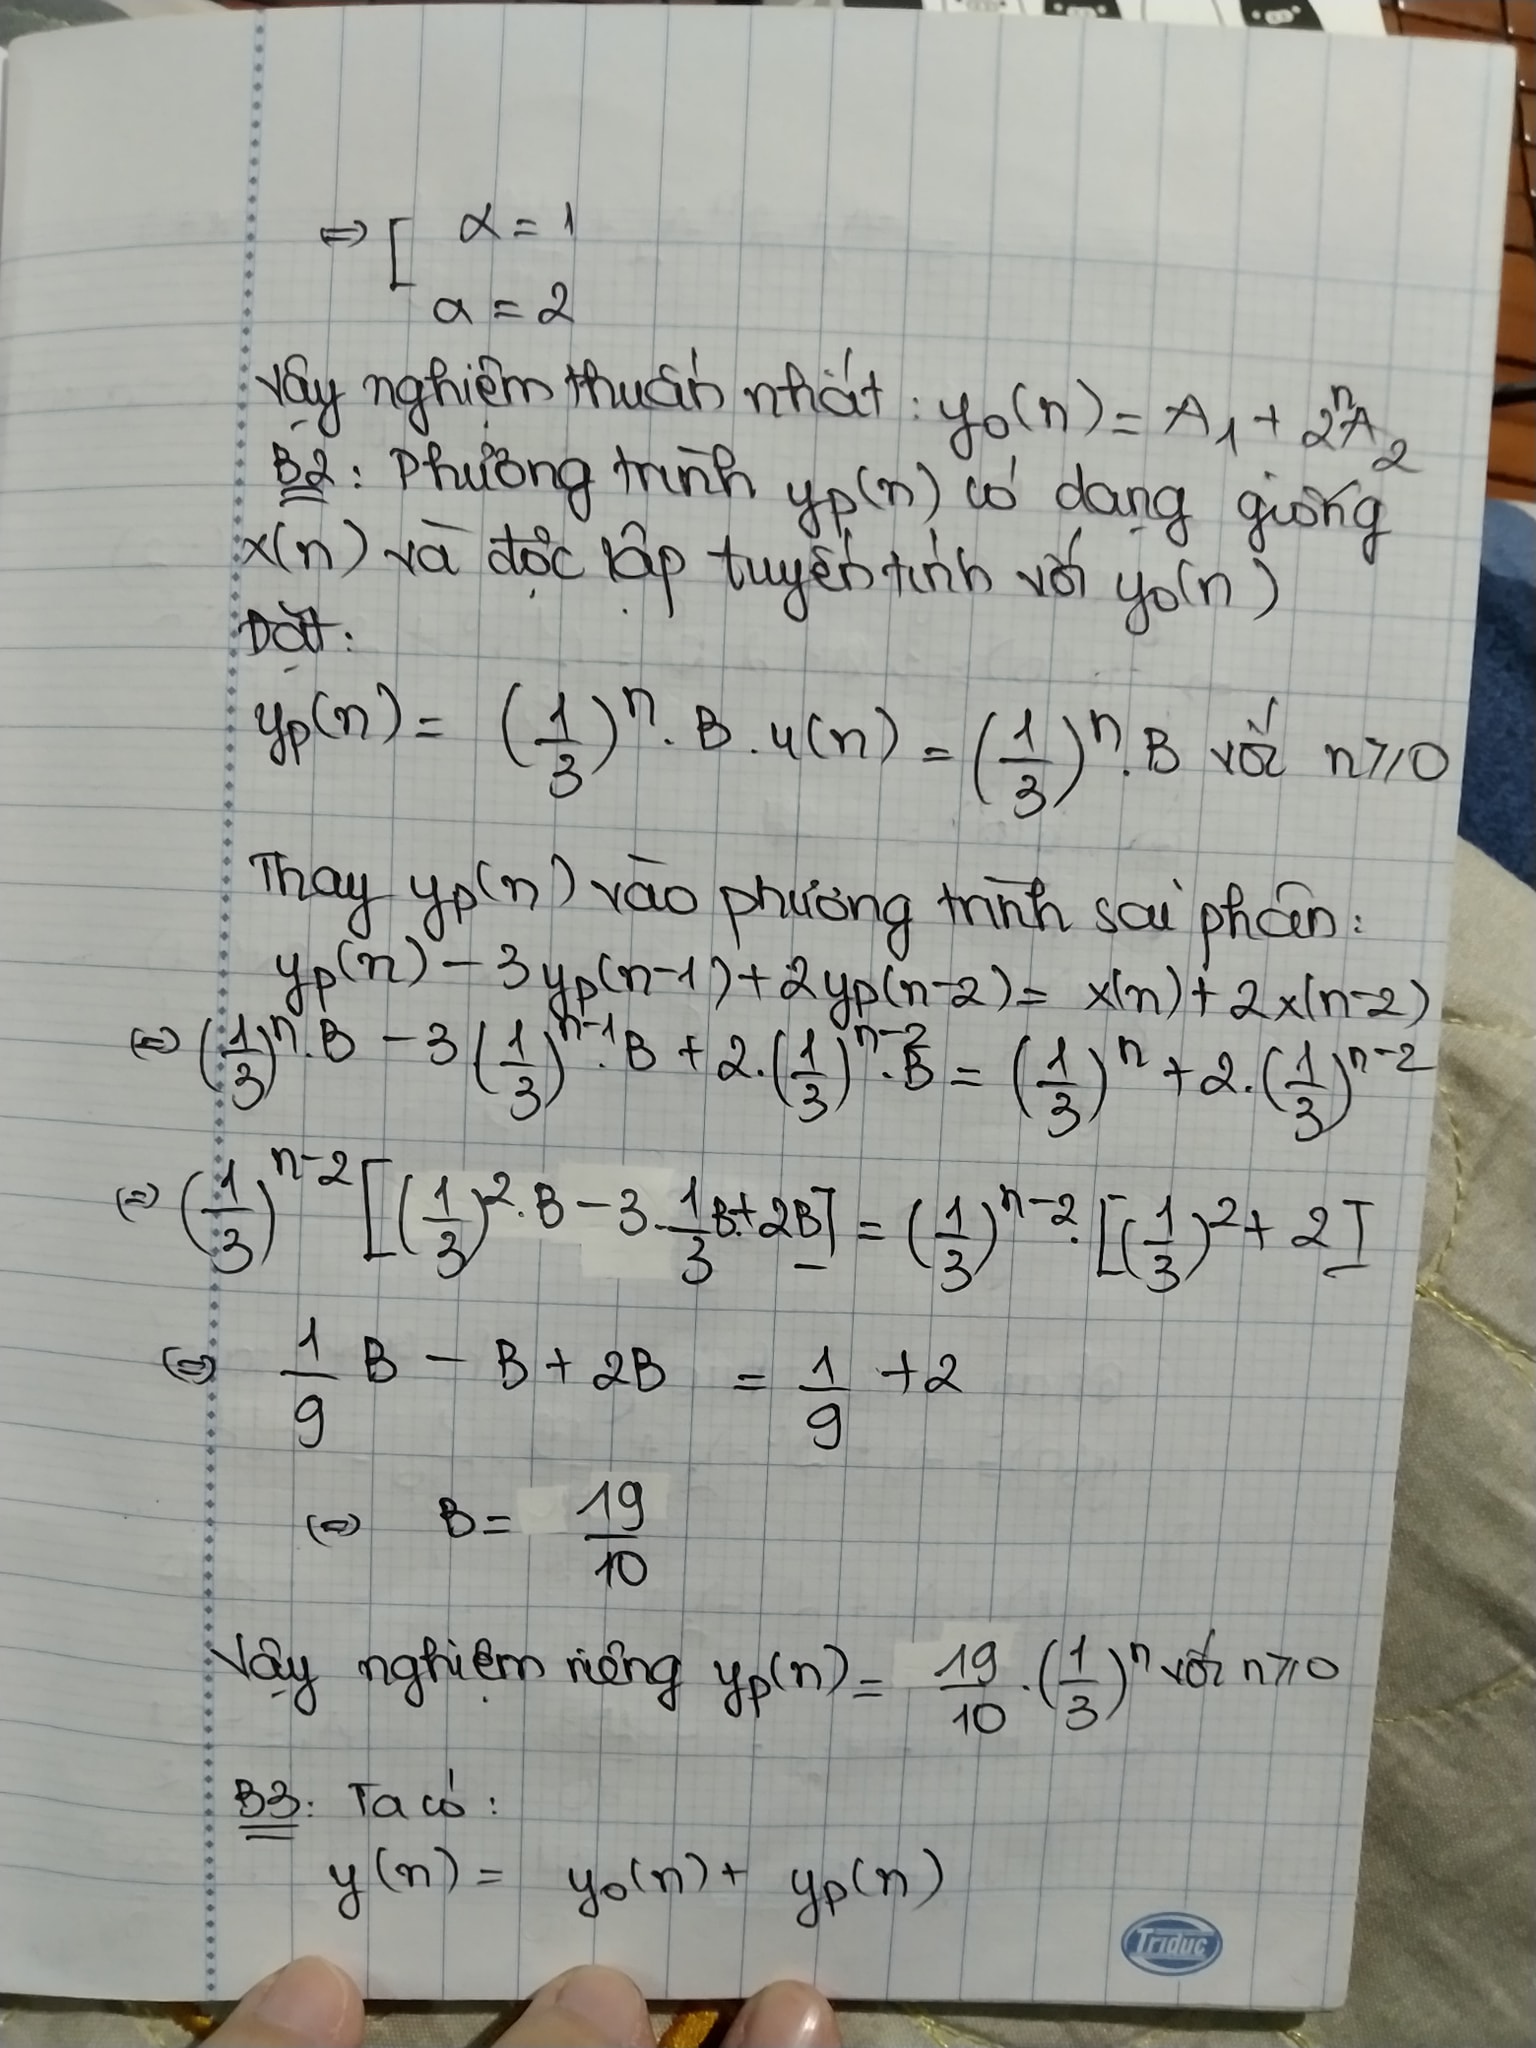 ⇒ [ α = 1
α = 2
Vậy nghiệm thuần nhất : y₀(n) = A₁ + 2ⁿA₂
B2 : Phương trình yp(n) có dạng giống
x(n) và độc lập tuyến tính với y₀(n)
Đặt :
yp(n) = (1/3)ⁿ . B . u(n) = (1/3)ⁿ . B với n ≥ 0
Thay yp(n) vào phương trình sai phân :
yp(n) - 3yp(n-1) + 2yp(n-2) = x(n) + 2x(n-2)
⇔ (1/3)ⁿ . B - 3(1/3)ⁿ⁻¹ . B + 2.(1/3)ⁿ⁻² . B = (1/3)ⁿ + 2.(1/3)ⁿ⁻²
⇔ (1/3)ⁿ⁻² [(1/3)² . B - 3 . 1/3 B + 2B] = (1/3)ⁿ⁻² . [(1/3)² + 2]
⇔ 1/9 B - B + 2B = 1/9 + 2
⇔ B = 19/10
Vậy nghiệm riêng yp(n) = 19/10 . (1/3)ⁿ với n ≥ 0
B3 : Ta có :
y(n) = y₀(n) + yp(n)
Triduc